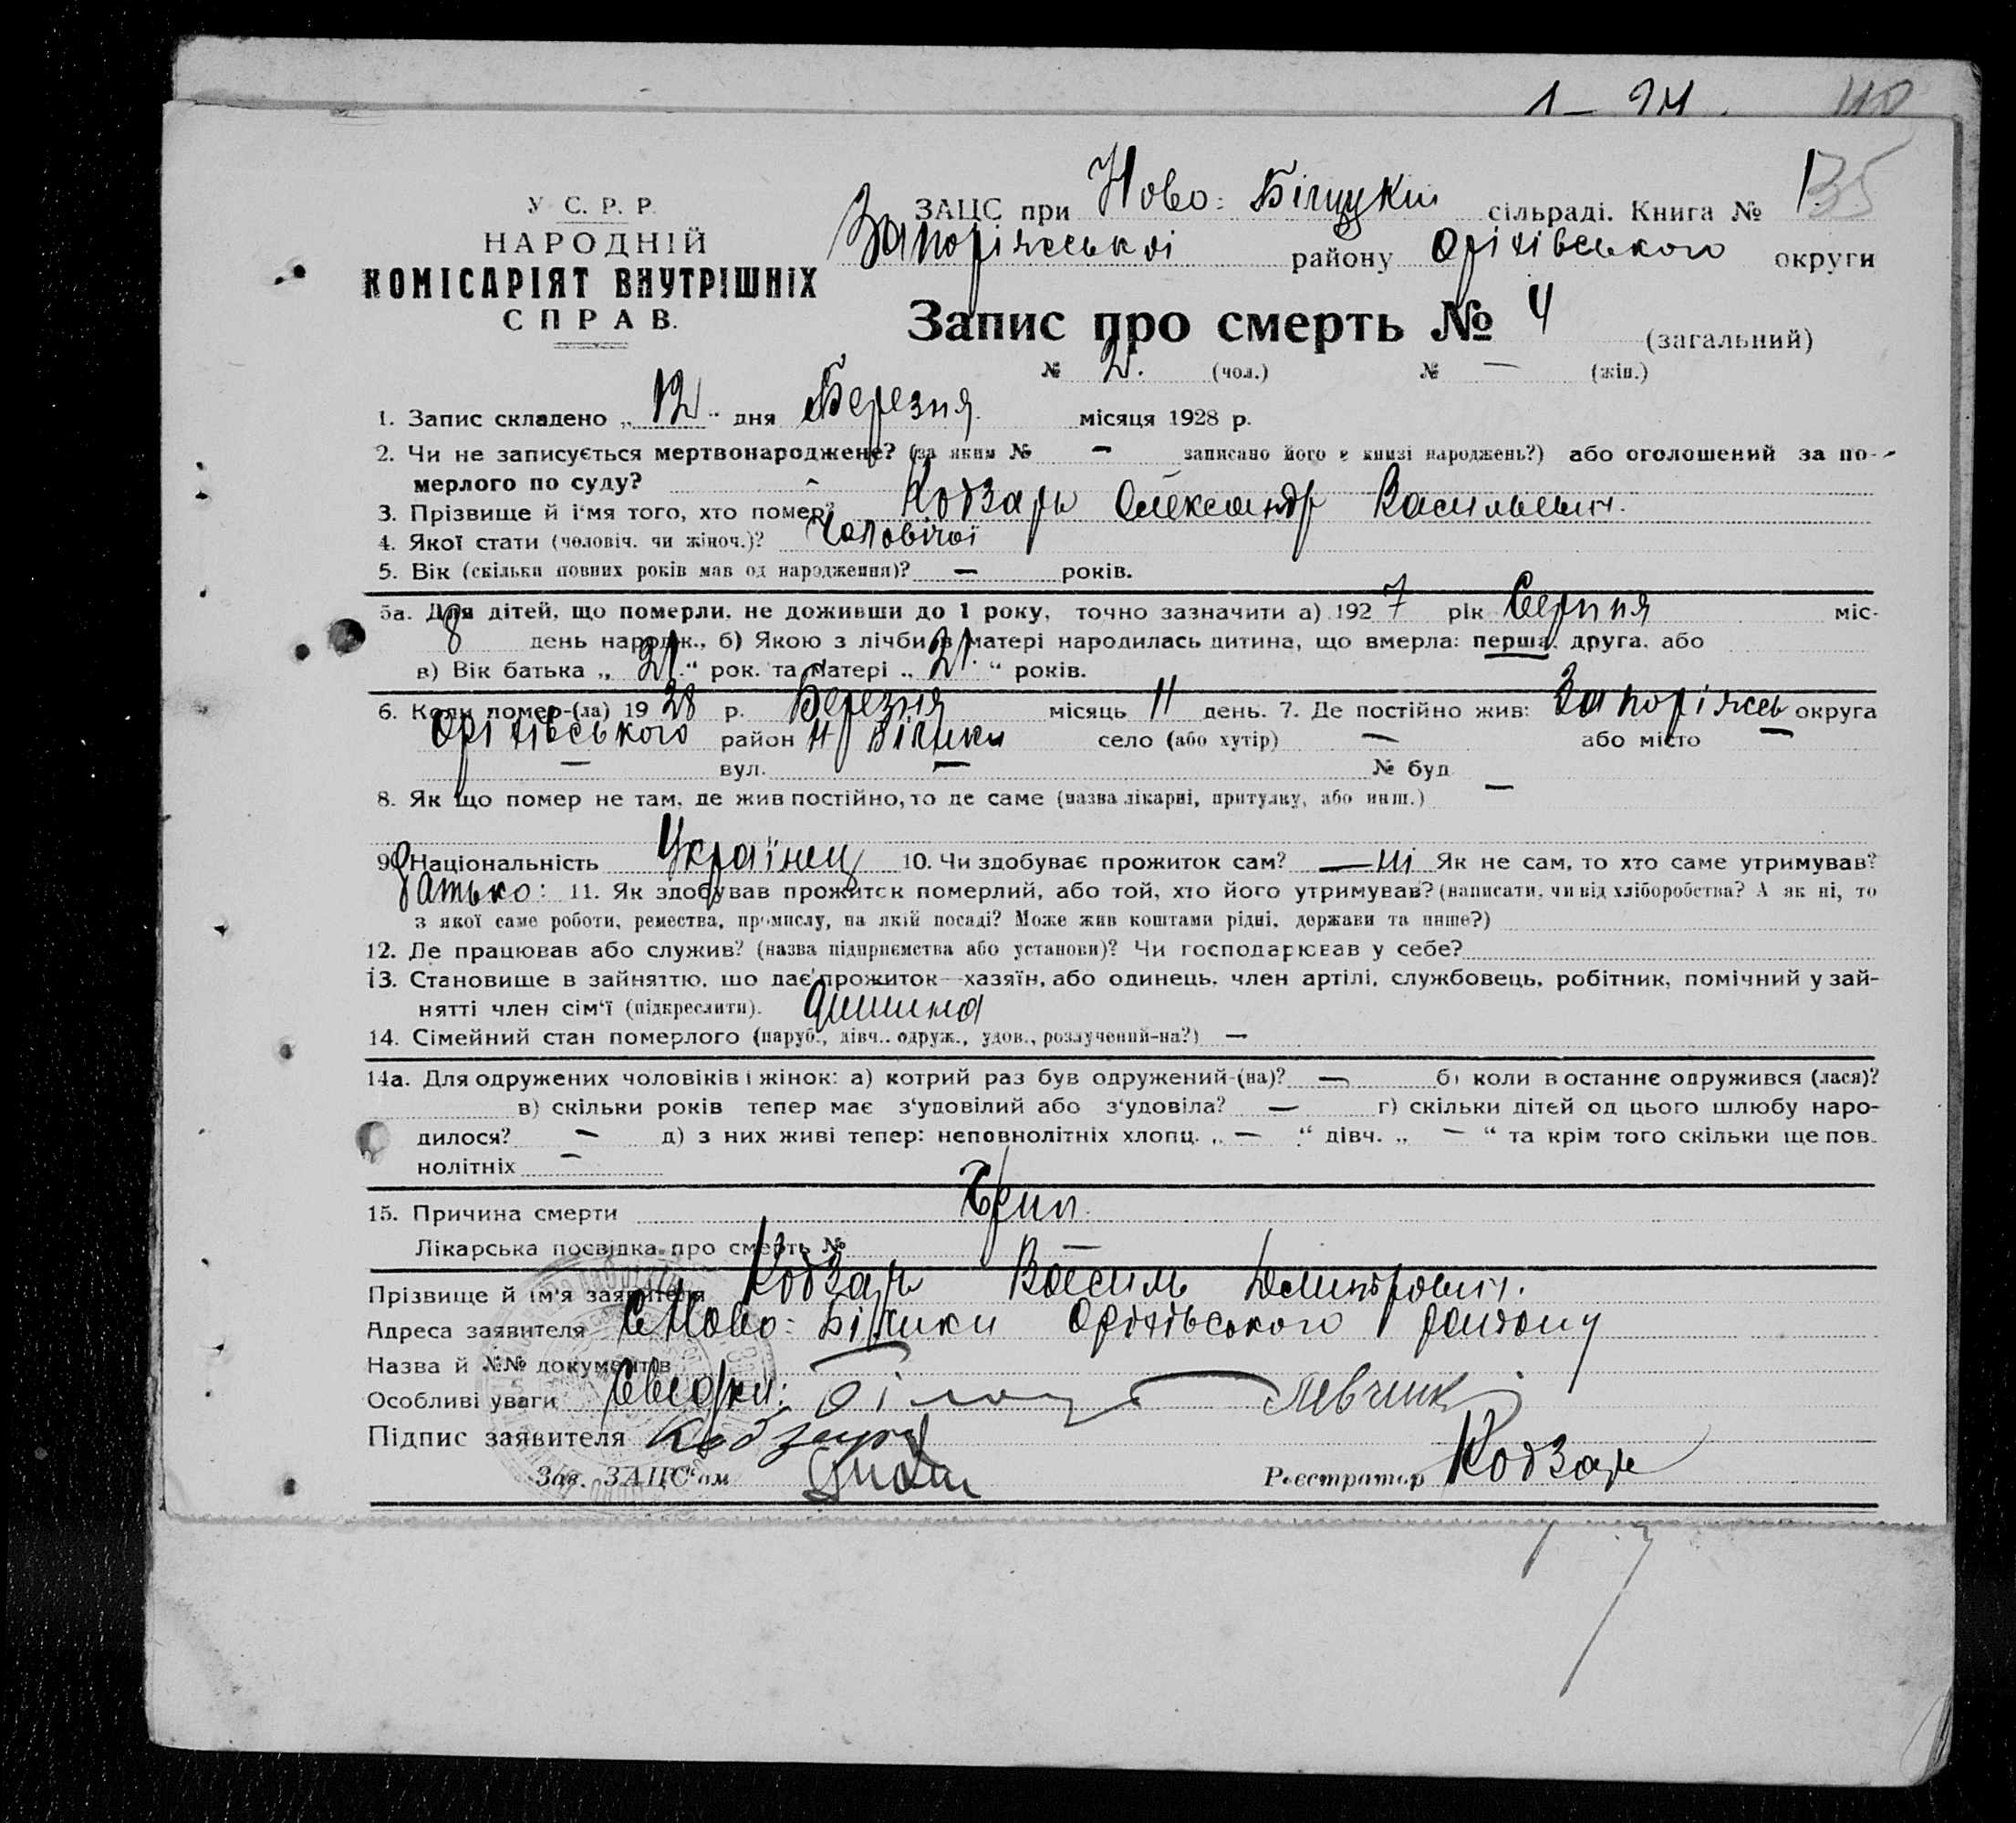 1 – 94. 40
135
У С. Р. Р.
НАРОДНІЙ
КОМІСАРІЯТ ВНУТРІШНІХ
СПРАВ.
ЗАЦС при Ново: сільраді. Книга № 1
Запоріжської району Оріхівського округи
Запис про смерть № 4 (загальний)
№ 2. (чол.) № — (жін.)
1. Запис складено „ 12 " дня Березня місяця 1928 р.
2. Чи не записується мертвонароджене? (за яким № – записано його в книзі народжень?) або оголошений за по-
мерлого по суду? -
3. Прізвище й ім'я того, хто помер? Кобзарь Олександр Васильевич.
4. Якої стати (чоловіч. чи жіноч.)? Чоловічої
5. Вік (скільки повних років мав од народження)? — років.
5а. Для дітей, що померли, не доживши до 1 року, точно зазначити а) 1927 рік Серпня міс.
8 день народж., б) Якою з лічби в матері народилась дитина, що вмерла: перша, друга, або
в) Вік батька „ 21. " рок. та матері „ 21. " років.
6. Коли помер-(ла) 19 28 р. Березня місяць 11 день. 7. Де постійно жив: Запоріжсь округа
Оріхівського район Н село (або хутір) — або місто —
— вул. — № буд. —
8. Як що помер не там, де жив постійно, то де саме (назва лікарні, притулку, або инш.)
9. Національність Українец 10. Чи здобуває прожиток сам? — ні Як не сам, то хто саме утримував?
батько: 11. Як здобував прожиток померлий, або той, хто його утримував? (написати, чи від хліборобства? А як ні, то
з якої саме роботи, ремества, промислу, на якій посаді? Може жив коштами рідні, держави та инше?)
12. Де працював або служив? (назва підприємства або установи)? Чи господарював у себе?
13. Становище в зайняттю, що дає прожиток—хазяїн, або одинець, член артілі, службовець, робітник, помічний у зай-
нятті член сім'ї (підкреслити). дитина
14. Сімейний стан померлого (паруб., дівч.. одруж., удов., розлучений-на?) —
14а. Для одружених чоловіків і жінок: а) котрий раз був одружений-(на)? — б) коли в останнє одружився (лася)?
в) скільки років тепер має з'удовілий або з'удовіла? — г) скільки дітей од цього шлюбу наро-
дилося? – д) з них живі тепер: неповнолітніх хлопц. „ — " дівч. „ — " та крім того скільки ще пов-
нолітніх –
15. Причина смерти Грип.
Лікарська посвідка про смерть № —
Прізвище й ім'я заявителя Кобзарь Василь Дмитрович.
Адреса заявителя С Ново: Білики Оріхівського району
Назва й №№ документів
Особливі уваги Свідки: Левчик
Підпис заявителя Кобзарь
Зав. ЗАЦС'ом Реєстратор Кобзарь